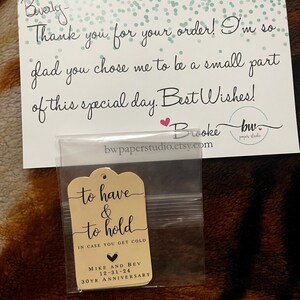 Beverly,
Thank you for your order! I'm so
glad you chose me to be a small part
of this special day. Best Wishes!
Brooke
bw.
paper studio
bwpaperstudio.etsy.com
to have
&
to hold
IN CASE YOU GET COLD
MIKE AND BEV
12-31-24
20YR ANNIVERSARY